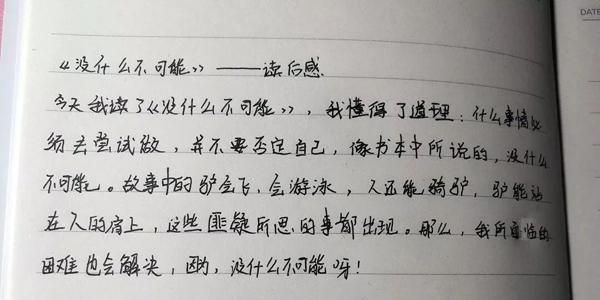 《没什么不可能》——读后感
今天我读了《没什么不可能》，我懂得了道理：什么事情必
须去尝试做，并不要否定自己，像书本中所说的，没什么
不可能。故事中的驴会飞，会游泳，人还能骑驴，驴能站
在人的肩上，这些匪疑所思的事都出现。那么，我所面临的
困难也会解决，因为，没什么不可能呀！
DATE